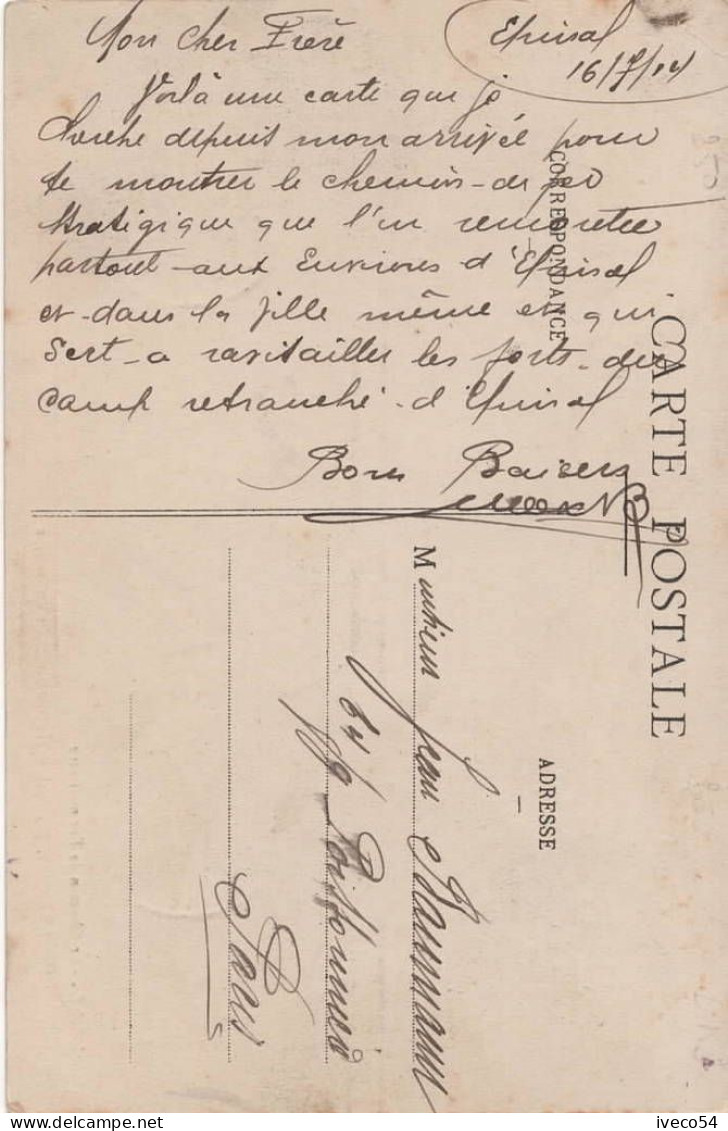 Mon Cher Frère
Epinal
16/7/14
Voilà une carte que je
cherche depuis mon arrivée pour
te montrer le chemin-de fer
stratigique que l'on rencontre
partout-aux Environs d'Epinal
et-dans la ville même et qui
sert-a ravitailler les forts-du
camp retranché-d'Epinal
Bons Baisers
CORRESPONDANCE
CARTE POSTALE
ADRESSE
Monsieur Jean Baumann
64 fg Poissonnière
Paris
iveco54